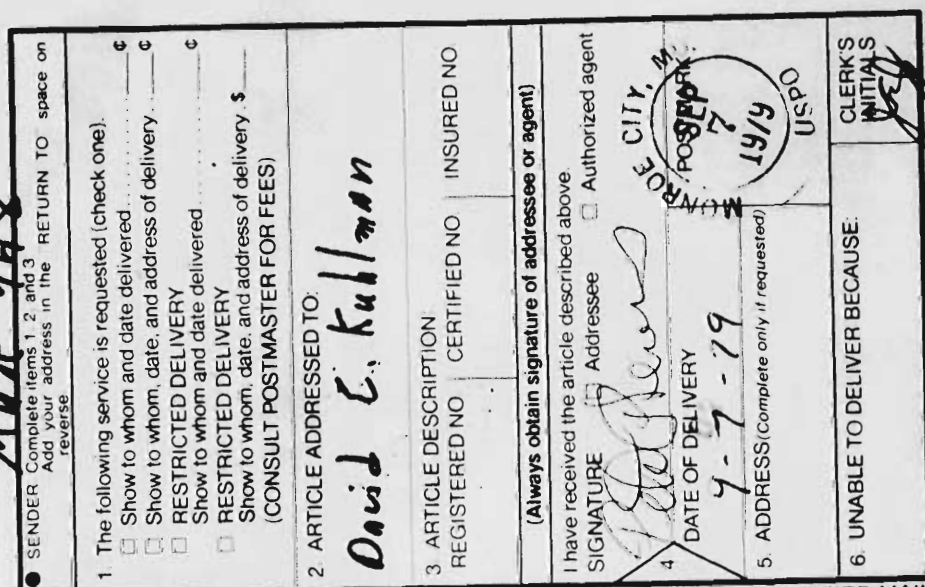 ● SENDER Complete items 1, 2, and 3
Add your address in the RETURN TO space on
reverse.
1. The following service is requested (check one).
☐ Show to whom and date delivered .......... ¢
☐ Show to whom, date, and address of delivery. ¢
☐ RESTRICTED DELIVERY
Show to whom and date delivered ......... ¢
☐ RESTRICTED DELIVERY
Show to whom, date, and address of delivery. $
(CONSULT POSTMASTER FOR FEES)
2. ARTICLE ADDRESSED TO:
David E. Kuhlman
3. ARTICLE DESCRIPTION
REGISTERED NO. CERTIFIED NO. INSURED NO.
(Always obtain signature of addressee or agent)
I have received the article described above.
SIGNATURE ☐ Addressee ☐ Authorized agent
4
DATE OF DELIVERY
9-7-79
POSTMARK
MONROE CITY,
SEP
7
1979
USPO
5. ADDRESS (complete only if requested)
6. UNABLE TO DELIVER BECAUSE:
CLERK'S
INITIALS